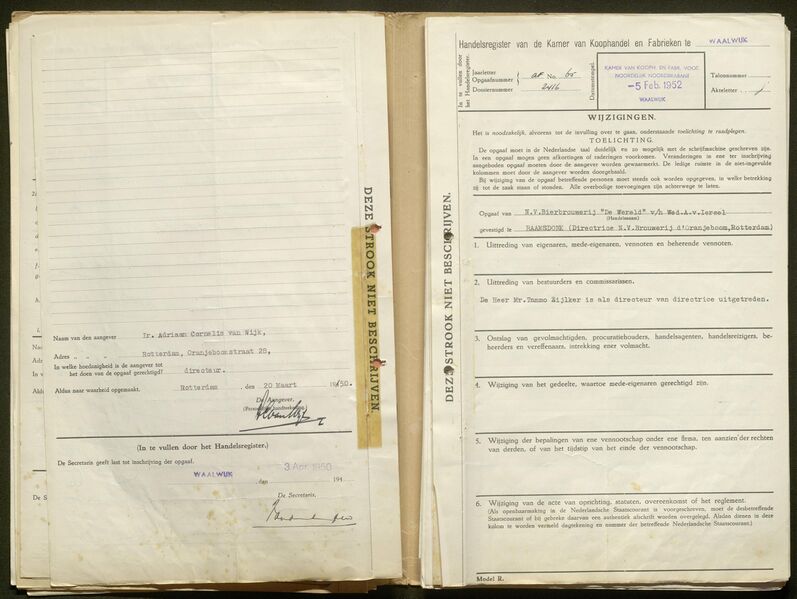 Naam van den aangever Ir. Adriaan Cornelis van Wijk,
Adres „ „ „ Rotterdam, Oranjeboomstraat 28,
In welke hoedanigheid is de aangever tot
het doen van de opgaaf gerechtigd? directeur.
Aldus naar waarheid opgemaakt. Rotterdam den 20 Maart 1950.
De Aangever,
(Persoonlijke handteekening)
(In te vullen door het Handelsregister.)
De Secretaris geeft last tot inschrijving der opgaaf.
WAALWIJK den 3 Apr. 1950 194
De Secretaris,
DEZE STROOK NIET BESCHRIJVEN.
DEZE STROOK NIET BESCHRIJVEN.
Handelsregister van de Kamer van Koophandel en Fabrieken te WAALWIJK
In te vullen door
het Handelsregister.
Jaarletter
Opgaafnummer No.
Dossiernummer 2416
Datumstempel.
KAMER VAN KOOPH. EN FABR. VOOR
NOORDELIJK NOORDBRABANT
-5 Feb. 1952
WAALWIJK
Talonnummer
Akteletter
WIJZIGINGEN.
Het is noodzakelijk, alvorens tot de invulling over te gaan, onderstaande toelichting te raadplegen.
TOELICHTING.
De opgaaf moet in de Nederlandse taal duidelijk en zo mogelijk met de schrijfmachine geschreven zijn.
In een opgaaf mogen geen afkortingen of raderingen voorkomen. Veranderingen in ene ter inschrijving
aangeboden opgaaf moeten door de aangever worden gewaarmerkt. De ledige ruimte in de niet-ingevulde
kolommen moet door de aangever worden doorgehaald.
Bij wijziging van de opgaaf betreffende personen moet steeds ook worden opgegeven, in welke betrekking
zij tot de zaak staan of stonden. Alle overbodige toevoegingen zijn achterwege te laten.
Opgaaf van N.V.Bierbrouwerij "De Wereld" v/h Wed.A.v.Iersel
(Handelsnaam)
gevestigd te RAAMSDONK (Directrice N.V.Brouwerij d'Oranjeboom,Rotterdam)
1. Uittreding van eigenaren, mede-eigenaren, vennoten en beherende vennoten.
2. Uittreding van bestuurders en commissarissen.
De Heer Mr.Tammo Zijlker is als directeur van directrice uitgetreden.
3. Ontslag van gevolmachtigden, procuratiehouders, handelsagenten, handelsreizigers, be-
heerders en vereffenaars, intrekking ener volmacht.
4. Wijziging van het gedeelte, waartoe mede-eigenaren gerechtigd zijn.
5. Wijziging der bepalingen van ene vennootschap onder ene firma, ten aanzien der rechten
van derden, of van het tijdstip van het einde der vennootschap.
6. Wijziging van de acte van oprichting, statuten, overeenkomst of het reglement.
(Als openbaarmaking in de Nederlandse Staatscourant is voorgeschreven, moet de desbetreffende
Staatscourant of bij gebreke daarvan een authentiek afschrift worden overgelegd. Alsdan dienen in deze
kolom te worden vermeld dagtekening en nummer der betreffende Nederlandsche Staatscourant.)
Model R.